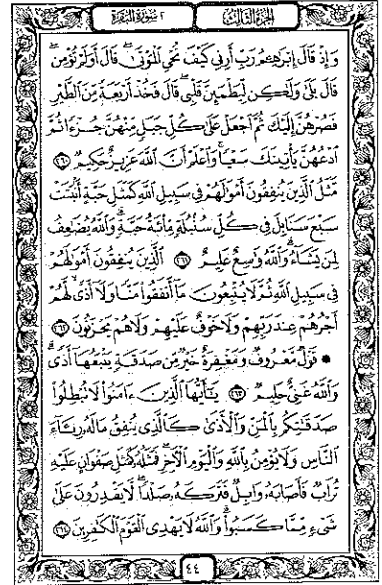 الجزء الثالث
٢ سورة البقرة
وَإِذْ قَالَ إِبْرَٰهِـۧمُ رَبِّ أَرِنِي كَيْفَ تُحْيِ ٱلْمَوْتَىٰ قَالَ أَوَلَمْ تُؤْمِن
قَالَ بَلَىٰ وَلَٰكِن لِّيَطْمَئِنَّ قَلْبِي قَالَ فَخُذْ أَرْبَعَةً مِّنَ ٱلطَّيْرِ
فَصُرْهُنَّ إِلَيْكَ ثُمَّ ٱجْعَلْ عَلَىٰ كُلِّ جَبَلٍ مِّنْهُنَّ جُزْءًا ثُمَّ
ٱدْعُهُنَّ يَأْتِينَكَ سَعْيًا وَٱعْلَمْ أَنَّ ٱللَّهَ عَزِيزٌ حَكِيمٌ ٢٦٠
مَّثَلُ ٱلَّذِينَ يُنفِقُونَ أَمْوَٰلَهُمْ فِي سَبِيلِ ٱللَّهِ كَمَثَلِ حَبَّةٍ أَنۢبَتَتْ
سَبْعَ سَنَابِلَ فِي كُلِّ سُنۢبُلَةٍ مِّا۟ئَةُ حَبَّةٍ وَٱللَّهُ يُضَٰعِفُ
لِمَن يَشَآءُ وَٱللَّهُ وَٰسِعٌ عَلِيمٌ ٢٦١ ٱلَّذِينَ يُنفِقُونَ أَمْوَٰلَهُمْ
فِي سَبِيلِ ٱللَّهِ ثُمَّ لَا يُتْبِعُونَ مَآ أَنفَقُوا۟ مَنًّا وَلَآ أَذًى لَّهُمْ
أَجْرُهُمْ عِندَ رَبِّهِمْ وَلَا خَوْفٌ عَلَيْهِمْ وَلَا هُمْ يَحْزَنُونَ ٢٦٢
۞ قَوْلٌ مَّعْرُوفٌ وَمَغْفِرَةٌ خَيْرٌ مِّن صَدَقَةٍ يَتْبَعُهَآ أَذًى
وَٱللَّهُ غَنِيٌّ حَلِيمٌ ٢٦٣ يَٰٓأَيُّهَا ٱلَّذِينَ ءَامَنُوا۟ لَا تُبْطِلُوا۟
صَدَقَٰتِكُم بِٱلْمَنِّ وَٱلْأَذَىٰ كَٱلَّذِي يُنفِقُ مَالَهُۥ رِئَآءَ
ٱلنَّاسِ وَلَا يُؤْمِنُ بِٱللَّهِ وَٱلْيَوْمِ ٱلْأَخِرِ فَمَثَلُهُۥ كَمَثَلِ صَفْوَانٍ عَلَيْهِ
تُرَابٌ فَأَصَابَهُۥ وَابِلٌ فَتَرَكَهُۥ صَلْدًا لَّا يَقْدِرُونَ عَلَىٰ
شَيْءٍ مِّمَّا كَسَبُوا۟ وَٱللَّهُ لَا يَهْدِي ٱلْقَوْمَ ٱلْكَٰفِرِينَ ٢٦٤
٤٤